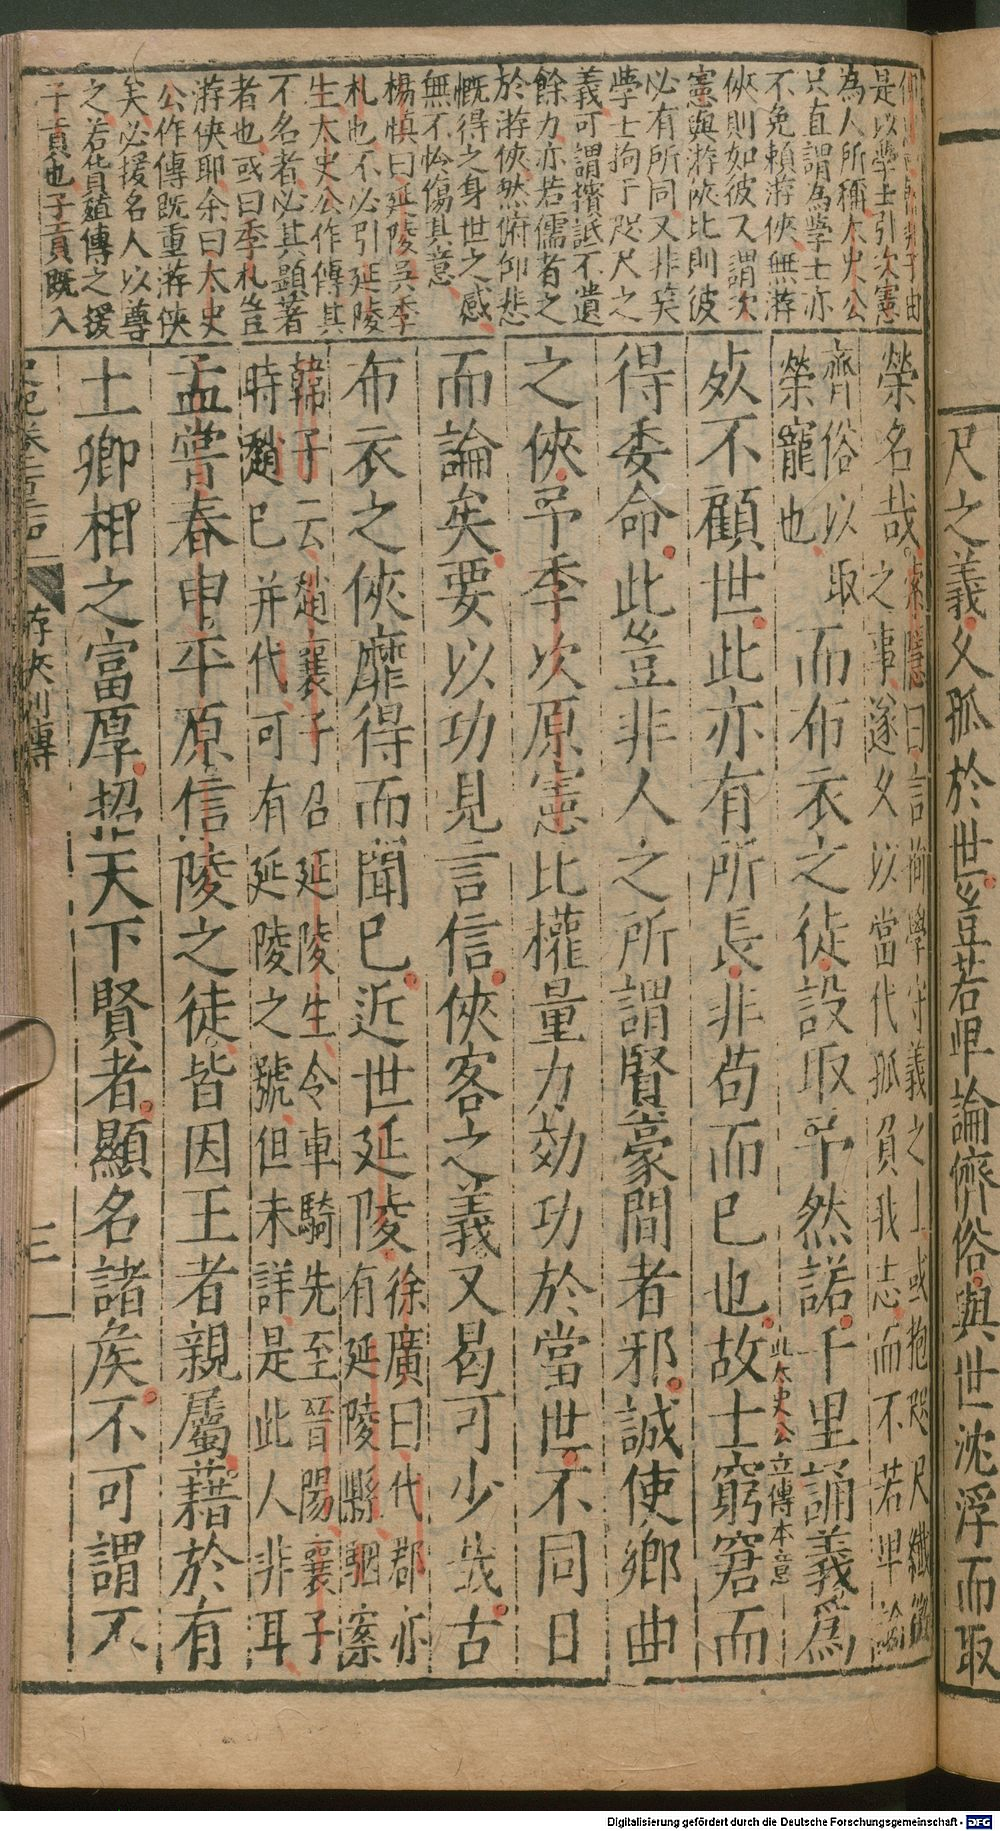 尺之義久孤於世豈若卑論儕俗與世沈浮而取
是以學士引次憲
為人所稱太史公
只直謂為學士亦
不免賴游俠無游
俠則如彼又謂次
憲與游俠比則彼
必有所同又非笑
學士拘于咫尺之
義可謂擠詆不遺
餘力亦若儒者之
於游俠然俯仰悲
慨得之身世之感
無不怜傷其意
楊慎曰延陵吳季
札也不必引延陵
生太史公作傳其
不名者必其顯著
者也或曰季札豈
游俠耶余曰太史
公作傳既重游俠
矣必援名人以尊
之若貨殖傳之援
子貢也子貢既入
榮名哉
索隱曰言拘學守義之士或抱咫尺纖微
之事遂久以當代孤負我志而不若卑論
齊俗以取
榮寵也
而布衣之徒設取予然諾千里誦義為
死不顧世此亦有所長非苟而已也
此太史公立傳本意
故士窮窘而
得委命此豈非人之所謂賢豪間者邪誠使鄉曲
之俠予季次原憲比權量力効功於當世不同日
而論矣要以功見言信俠客之義又曷可少哉古
布衣之俠靡得而聞已近世延陵
徐廣曰代郡亦
有延陵縣駰案
韓子云趙襄子召延陵生令車騎先至晉陽襄子
時趙已并代可有延陵之號但未詳是此人非耳
孟嘗春申平原信陵之徒皆因王者親屬藉於有
土卿相之富厚招天下賢者顯名諸矦不可謂不
三
Digitalisierung gefördert durch die Deutsche Forschungsgemeinschaft - DFG